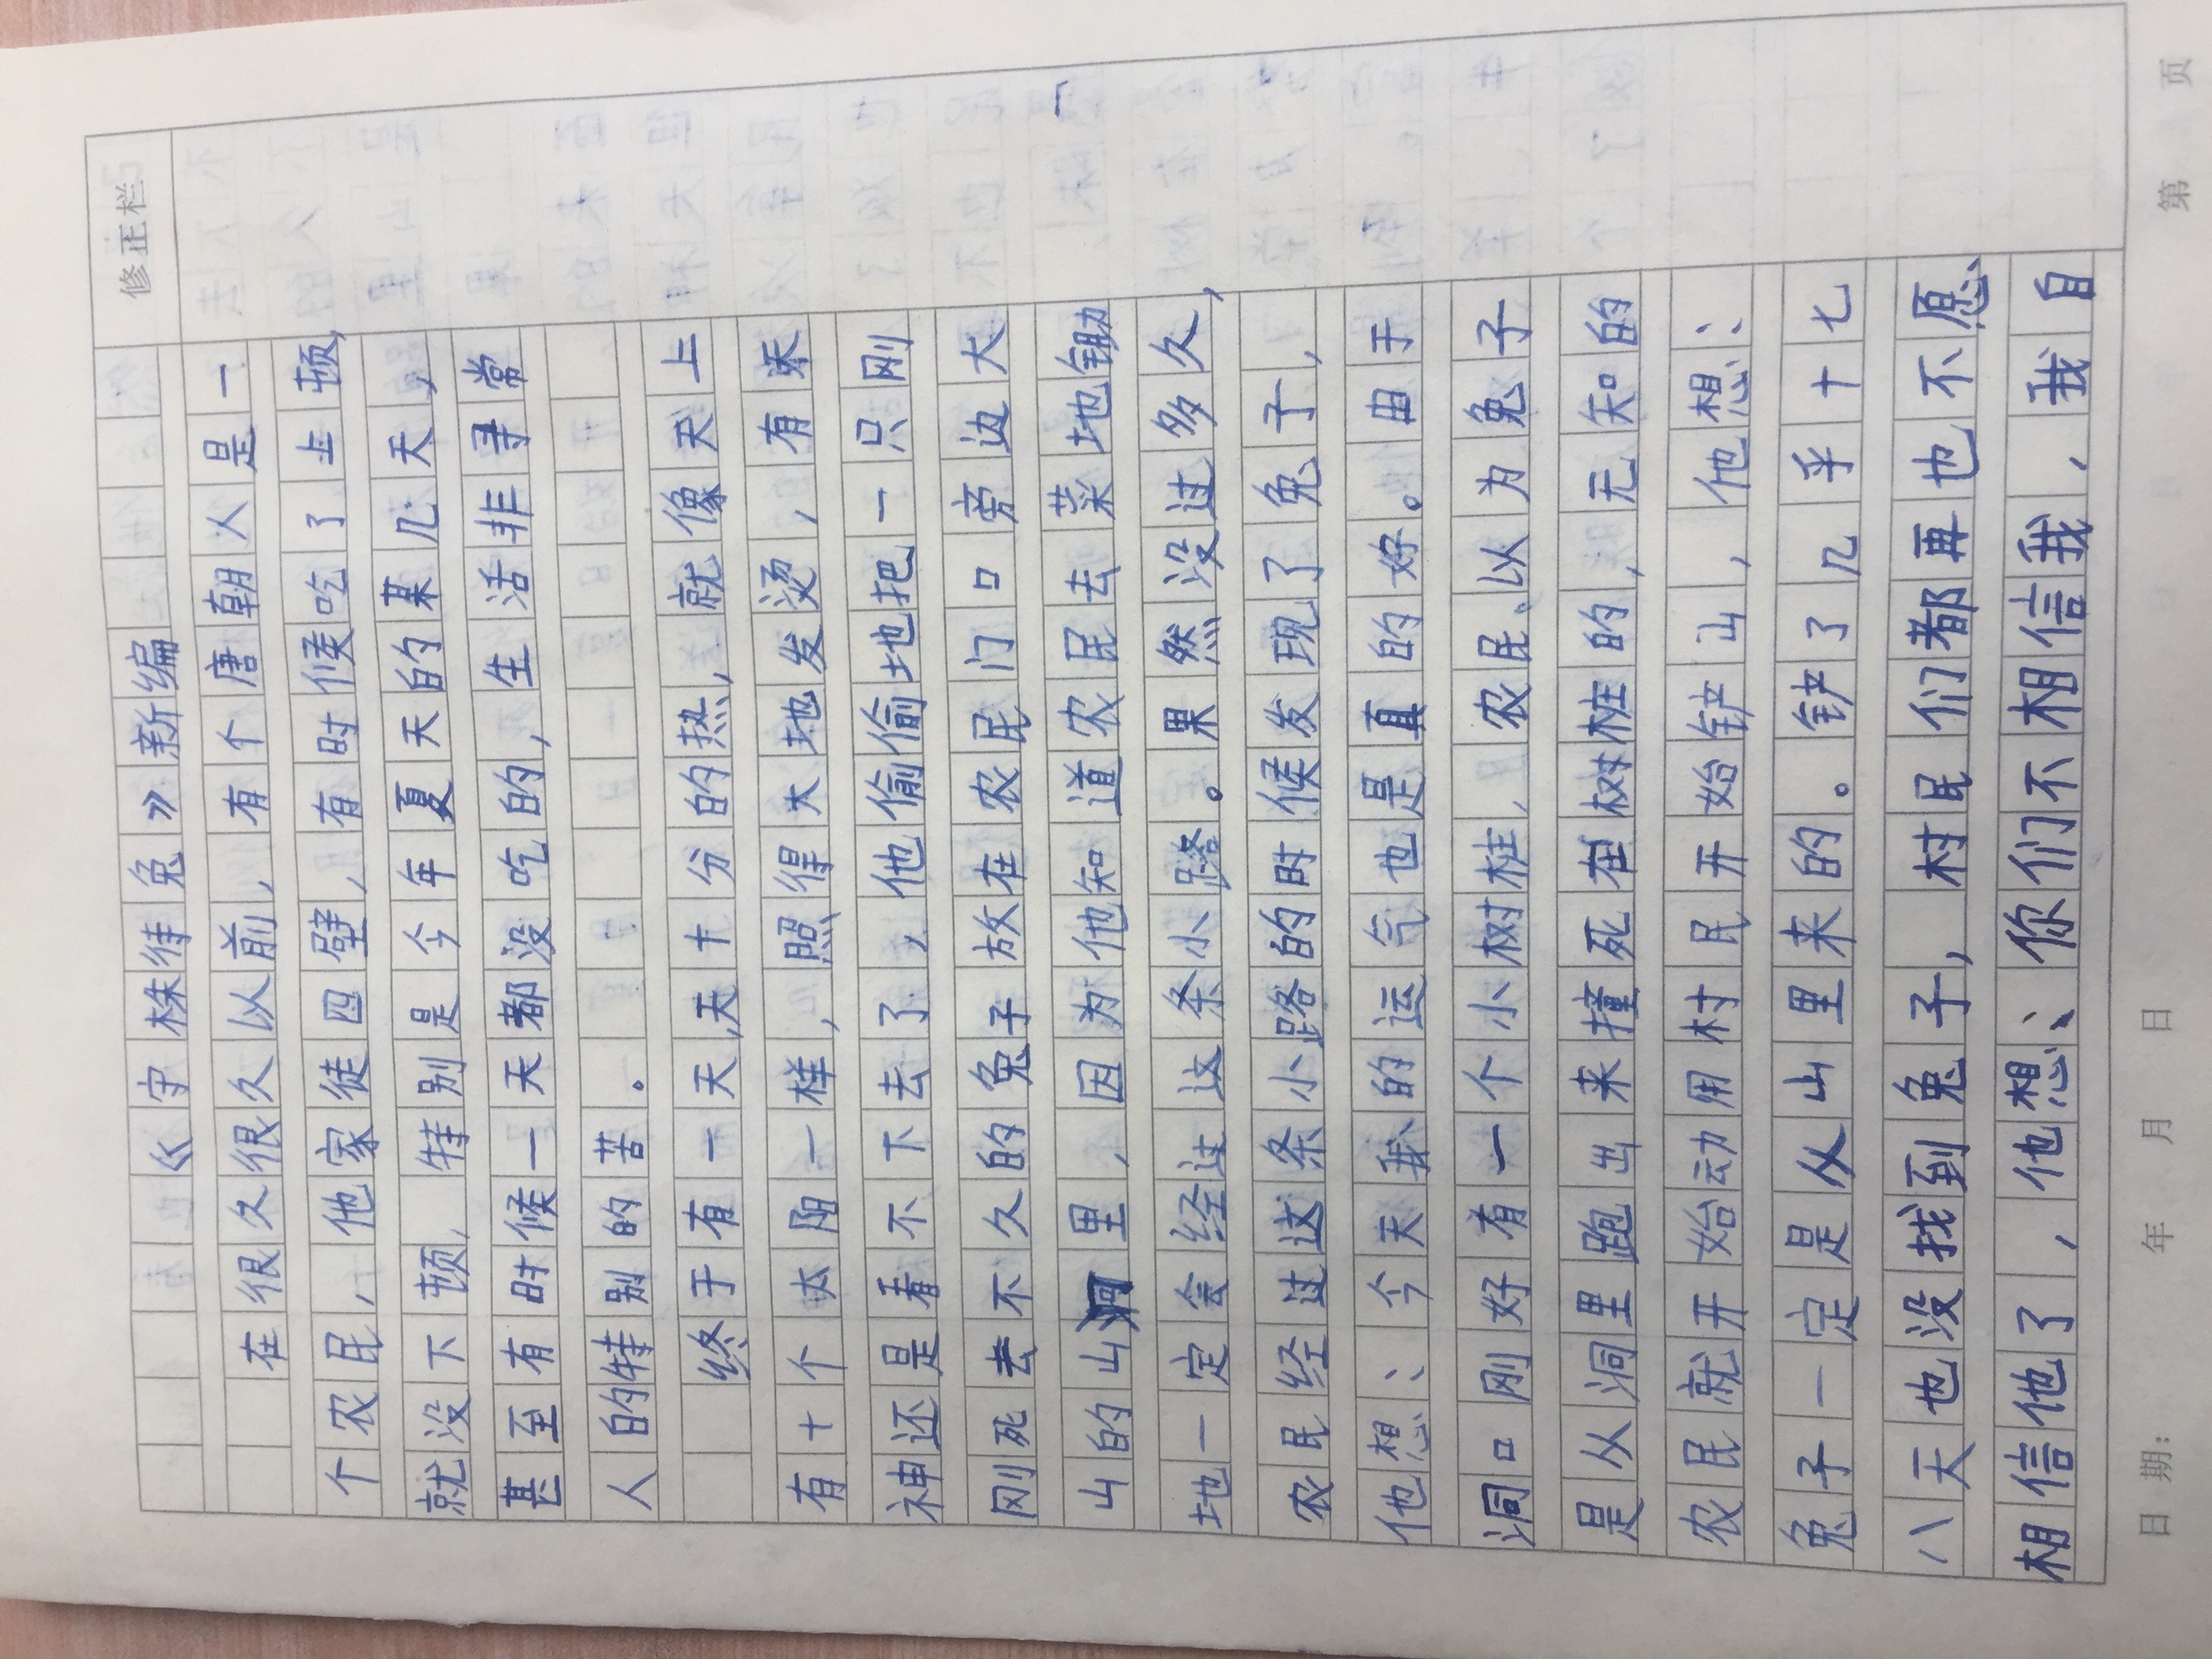 修正栏
《守株待兔》新编
在很久很久以前，有个唐朝人是一
个农民，他家徒四壁，有时候吃了上顿，
就没下顿，特别是今年夏天的某几天，
甚至有时候一天都没吃的，生活非寻常
人的特别的苦。
终于有一天，天十分的热，就像天上
有十个太阳一样，照得大地发烫，有天
神还是看不下去了，他偷偷地把一只刚
刚死去不久的兔子放在农民门口旁边大
山的山里，因为他知道农民去菜地锄
地一定会经过这条小路。果然没过多久，
农民经过这条小路的时候发现了兔子，
他想：今天我的运气也是真的好。由于
洞口刚好有一个小树桩，农民以为兔子
是从洞里跑出来撞死在树桩的，无知的
农民就开始动用村民开始铲山，他想：
兔子一定是从山里来的。铲了几乎十七
八天也没找到兔子，村民们都再也不愿
相信他了，他想：你们不相信我，我自
日期： 年 月 日 第 页